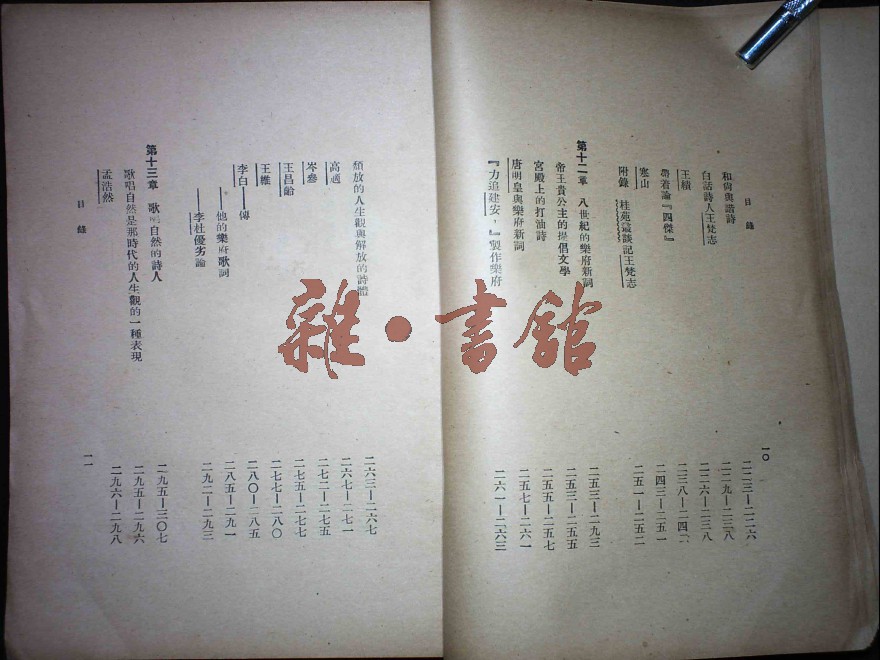 目錄
一〇
和尚與諧詩 二二三—二二六
白話詩人王梵志 二二九—二三八
王績 二二六—二三八
帶着論『四傑』 二三八—二四二
寒山 二四三—二五一
附錄 桂苑叢談記王梵志 二五一—二五二
第十二章 八世紀的樂府新詞 二五三—二九三
帝王貴公主的提倡文學 二五三—二五五
宮殿上的打油詩 二五五—二五七
唐明皇與樂府新詞 二五七—二六一
『力追建安，』製作樂府 二六一—二六三
頹放的人生觀與解放的詩體 二六三—二六七
高適 二六七—二七一
岑參 二七二—二七五
王昌齡 二七五—二七七
王維 二七七—二八〇
李白——傳 二八〇—二八五
——他的樂府歌詞 二八五—二九一
——李杜優劣論 二九二—二九三
第十三章 歌唱自然的詩人 二九五—三〇七
歌唱自然是那時代的人生觀的一種表現 二九五—二九六
孟浩然 二九六—二九八
目錄
一一
雜·書館